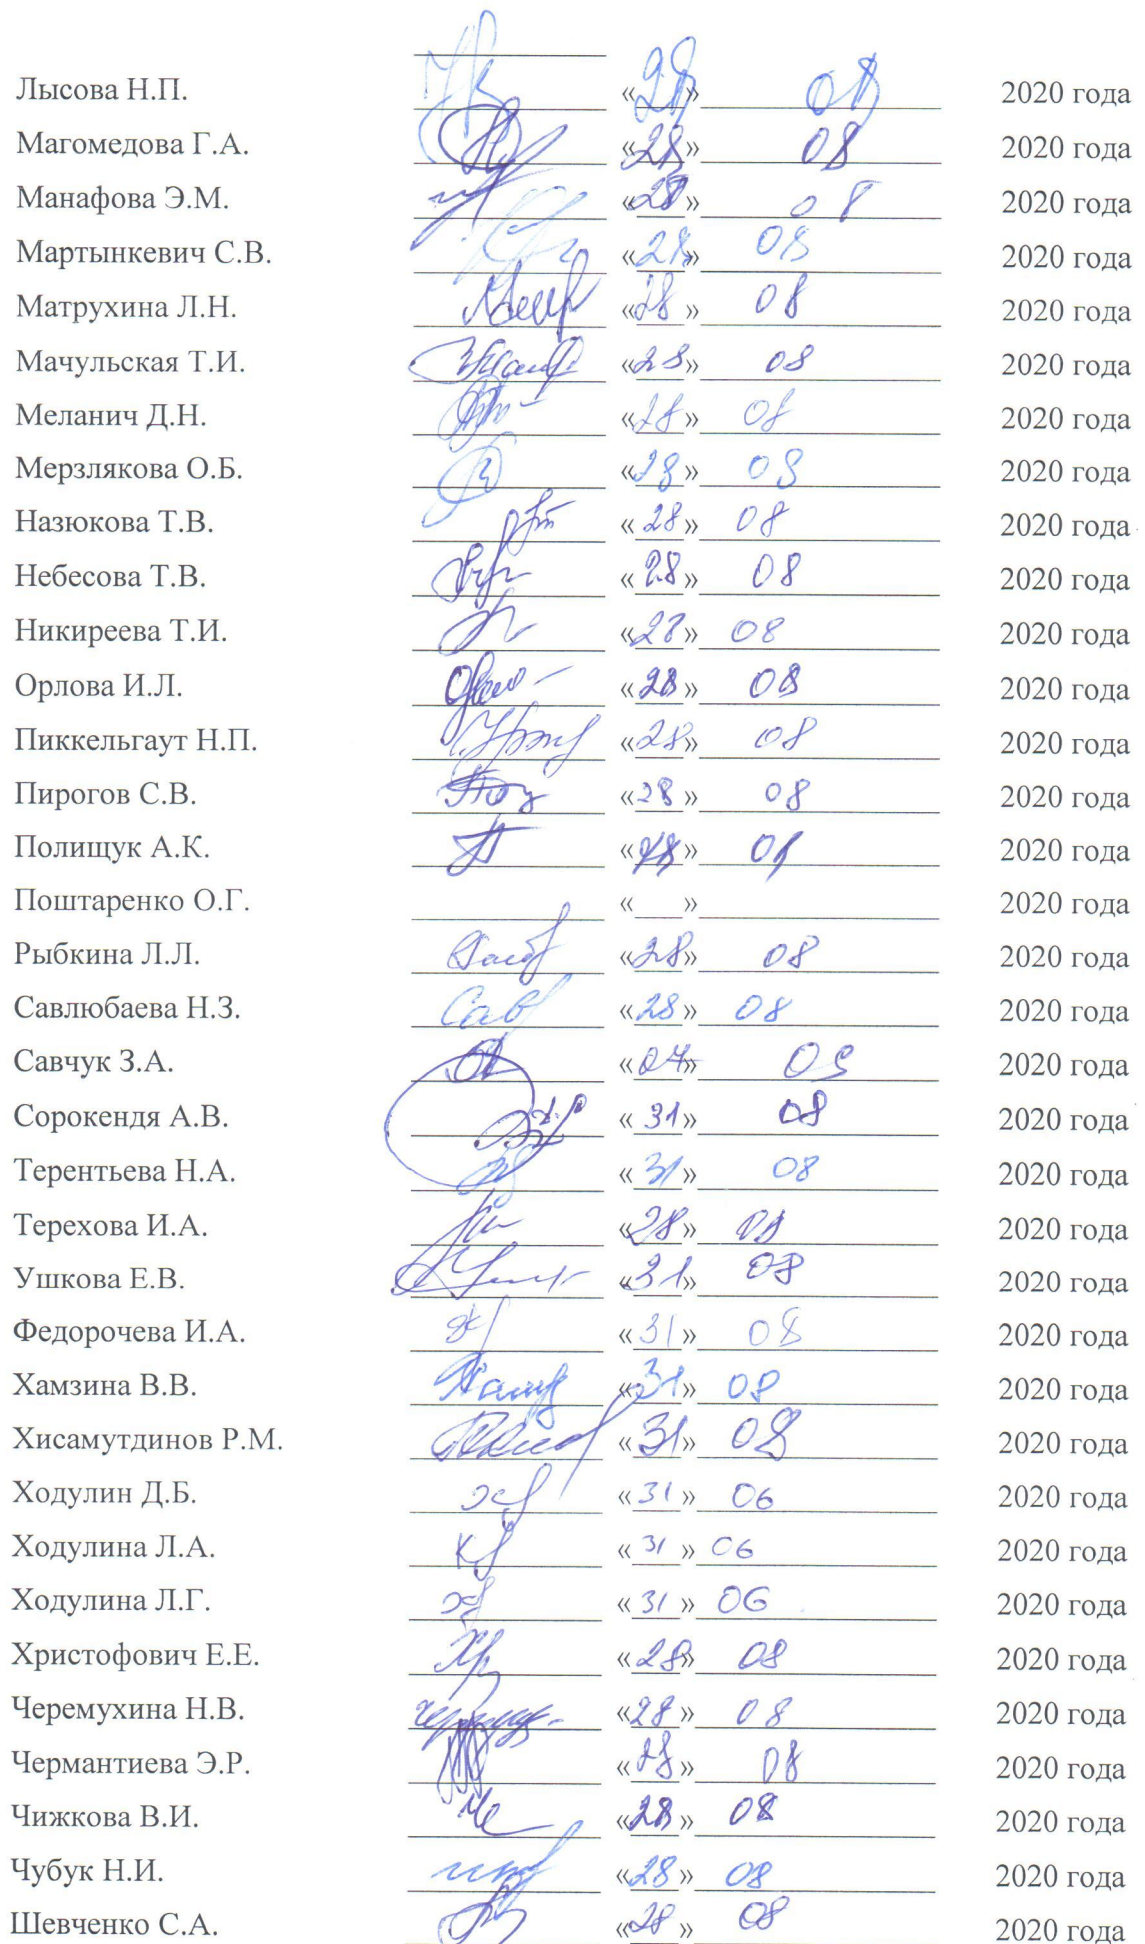 Лысова Н.П. «28» 08 2020 года
Магомедова Г.А. «28» 08 2020 года
Манафова Э.М. «28» 08 2020 года
Мартынкевич С.В. «28» 08 2020 года
Матрухина Л.Н. «28» 08 2020 года
Мачульская Т.И. «28» 08 2020 года
Меланич Д.Н. «28» 08 2020 года
Мерзлякова О.Б. «28» 08 2020 года
Назюкова Т.В. «28» 08 2020 года
Небесова Т.В. «28» 08 2020 года
Никиреева Т.И. «28» 08 2020 года
Орлова И.Л. «28» 08 2020 года
Пиккельгаут Н.П. «28» 08 2020 года
Пирогов С.В. «28» 08 2020 года
Полищук А.К. «28» 08 2020 года
Поштаренко О.Г. «___»____________ 2020 года
Рыбкина Л.Л. «28» 08 2020 года
Савлюбаева Н.З. Сав «28» 08 2020 года
Савчук З.А. «07» 09 2020 года
Сорокендя А.В. «31» 08 2020 года
Терентьева Н.А. «31» 08 2020 года
Терехова И.А. «28» 08 2020 года
Ушкова Е.В. «31» 08 2020 года
Федорочева И.А. «31» 08 2020 года
Хамзина В.В. «31» 08 2020 года
Хисамутдинов Р.М. «31» 08 2020 года
Ходулин Д.Б. «31» 06 2020 года
Ходулина Л.А. «31» 06 2020 года
Ходулина Л.Г. «31» 06 2020 года
Христофович Е.Е. «28» 08 2020 года
Черемухина Н.В. «28» 08 2020 года
Чермантиева Э.Р. «28» 08 2020 года
Чижкова В.И. «28» 08 2020 года
Чубук Н.И. «28» 08 2020 года
Шевченко С.А. «28» 08 2020 года